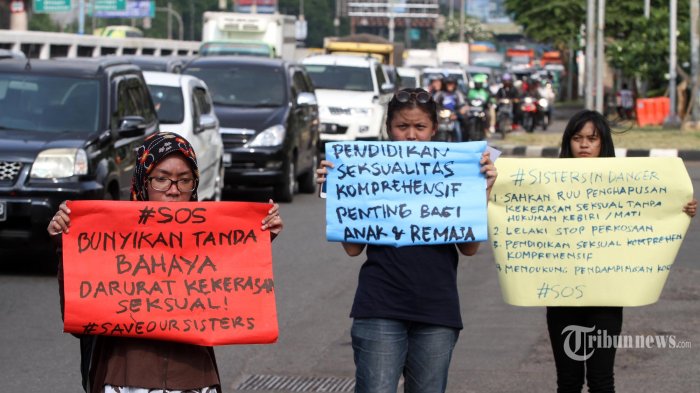 #SOS
BUNYIKAN TANDA
BAHAYA
DARURAT KEKERASAN
SEKSUAL!
#SAVEOURSISTERS
PENDIDIKAN
SEKSUALITAS
KOMPREHENSIF
PENTING BAGI
ANAK & REMAJA
#SISTERS IN DANGER
1. SAHKAN RUU PENGHAPUSAN
KEKERASAN SEKSUAL TANPA
HUKUMAN KEBIRI/MATI
2. LELAKI STOP PERKOSAAN
3. PENDIDIKAN SEKSUAL KOMPREHEN
KOMPREHENSIF
4. MENDUKUNG PENDAMPINGAN KOR
#SOS
Tribunnews.com